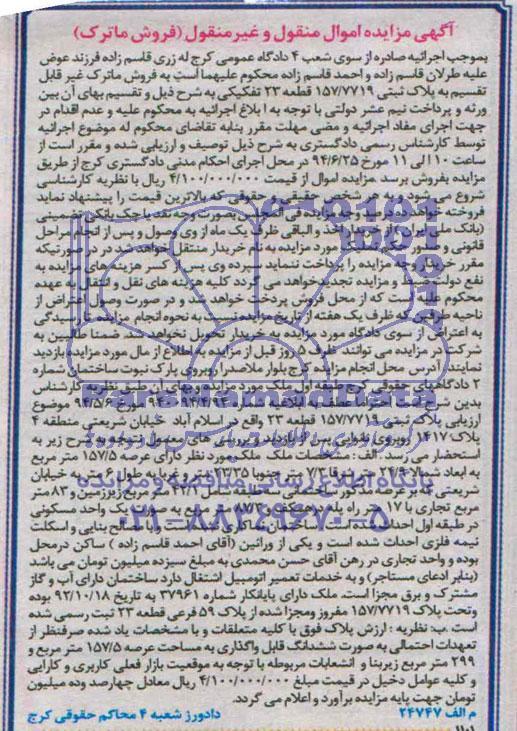 آگهی مزایده اموال منقول و غیرمنقول (فروش ماترک)
بموجب اجرائیه صادره از سوی شعبه ۴ دادگاه عمومی کرج له زری قاسم زاده فرزند عوض
علیه طرلان قاسم زاده و احمد قاسم زاده محکوم علیهما است به فروش ماترک غیر قابل
تقسیم به پلاک ثبتی ۱۵۷/۷۷۱۹ قطعه ۲۳ تفکیکی به شرح ذیل و تقسیم بهای آن بین
ورثه و پرداخت نیم عشر دولتی با توجه به ابلاغ اجرائیه به محکوم علیه و عدم اقدام در
جهت اجرای مفاد اجرائیه و مضی مهلت مقرر بنابه تقاضای محکوم له موضوع اجرائیه
توسط کارشناس رسمی دادگستری به شرح ذیل توصیف و ارزیابی شده و مقرر است از
ساعت ۱۰ الی ۱۱ مورخ ۹۴/۶/۲۵ در محل اجرای احکام مدنی دادگستری کرج از طریق
مزایده بفروش برسد. مزایده اموال از قیمت ۴/۱۰۰/۰۰۰/۰۰۰ ریال با نظریه کارشناسی
شروع می شود و به هر شخص حقیقی و حقوقی که بالاترین قیمت را پیشنهاد نماید
فروخته خواهد ده درصد وجه مزایده فی المجلس بصورت وجه نقد یا چک بانکی تضمینی
(بانک ملی ایران) از خریدار اخذ و الباقی ظرف یک ماه از وی وصول و پس از انجام مراحل
قانونی و صدور مورد مزایده به نام خریدار منتقل خواهد شد در صورتیکه
مقرر خریدار وجه مزایده را پرداخت ننماید سپرده وی پس از کسر هزینه های مزایده به
نفع دولت ضبط و مزایده تجدید خواهد می گردد کلیه هزینه های نقل و انتقال به عهده
محکوم علیه است که از محل فروش پرداخت خواهد شد و در صورت وصول اعتراض از
ناحیه طرفین که ظرف یک هفته از تاریخ مزایده نسبت به نحوه انجام مزایده تا رسیدگی
به اعتراض از سوی دادگاه مورد مزایده به خریدار تحویل نخواهد شد. ضمنا طالبین به
شرکت در مزایده می توانند ظرف ۵ روز قبل از مزایده به اطلاع از مال مورد مزایده بازدید
نمایند. آدرس محل انجام مزایده کرج بلوار ملاصدرا روبروی پارک نبوت ساختمان شماره
۲ دادگاههای حقوقی کرج طبقه اول ملک مورد مزایده و بهای آن طبق نظریه کارشناس
بدین شرح است احتراما عطف به ابلاغیه شماره مورخ ۹۴/۵/۶ موضوع
ارزیابی پلاک ثبتی ۱۵۷/۷۷۱۹ قطعه ۲۳ واقع در اسلام آباد خیابان شریعتی منطقه ۴
پلاک ۱۴۱۷ روبروی نانوایی پس از بازدید و بررسی های معمول نتیجه به شرح زیر به
استحضار می رسد: الف: مشخصات ملک ملک مورد نظر دارای عرصه ۱۵۷/۵ متر مربع
به ابعاد شمالا ۲۴/۹ متر شرقا ۷/۳ متر جنوبا ۲۳/۳۵ متر و غربا به طول ۶ متر به خیابان
شریعتی که بر عرصه مذکور ساختمانی سه طبقه شامل ۴۲/۱ متر مربع زیرزمین و ۸۳ متر
مربع تجاری با ۱۷ متر راه پله و همکف و ۸۷/۱ متر مربع به صورت یک واحد مسکونی
در طبقه اول احداث ساختمان مذکور با مصالح بنایی و اسکلت
نیمه فلزی احداث شده است و یکی از وراثین (آقای احمد قاسم زاده) ساکن در محل
بوده و واحد تجاری در رهن آقای حسن محمدی به مبلغ سیزده میلیون تومان می باشد
(بنابر ادعای مستاجر) و به خدمات تعمیر اتومبیل اشتغال دارد ساختمان دارای آب و گاز
مشترک و برق مجزا است. ملک دارای پایانکار شماره ۳۷۹۶۱ به تاریخ ۹۲/۱۰/۱۸ بوده
وتحت پلاک ۱۵۷/۷۷۱۹ مفروز ومجزا شده از پلاک ۵۹ فرعی قطعه ۲۳ ثبت رسمی شده
است .ب: نظریه : ارزش پلاک فوق با کلیه متعلقات و با مشخصات یاد شده صرفنظر از
تعهدات احتمالی به صورت ششدانگ قابل واگذاری به مساحت عرصه ۱۵۷/۵ متر مربع و
۲۹۹ متر مربع زیربنا و انشعابات مربوطه با توجه به موقعیت بازار فعلی کاربری و کارایی
و کلیه عوامل دخیل در قیمت مبلغ ۴/۱۰۰/۰۰۰/۰۰۰ ریال معادل چهارصد وده میلیون
تومان جهت پایه مزایده برآورد و اعلام می گردد.
م الف ۲۴۷۴۷ دادورز شعبه ۴ محاکم حقوقی کرج
۱۱۰۱
ParsNamadData
پایگاه اطلاع رسانی مناقصه و مزایده
۰۲۱-۸۸۳۴۹۶۷۰-۵